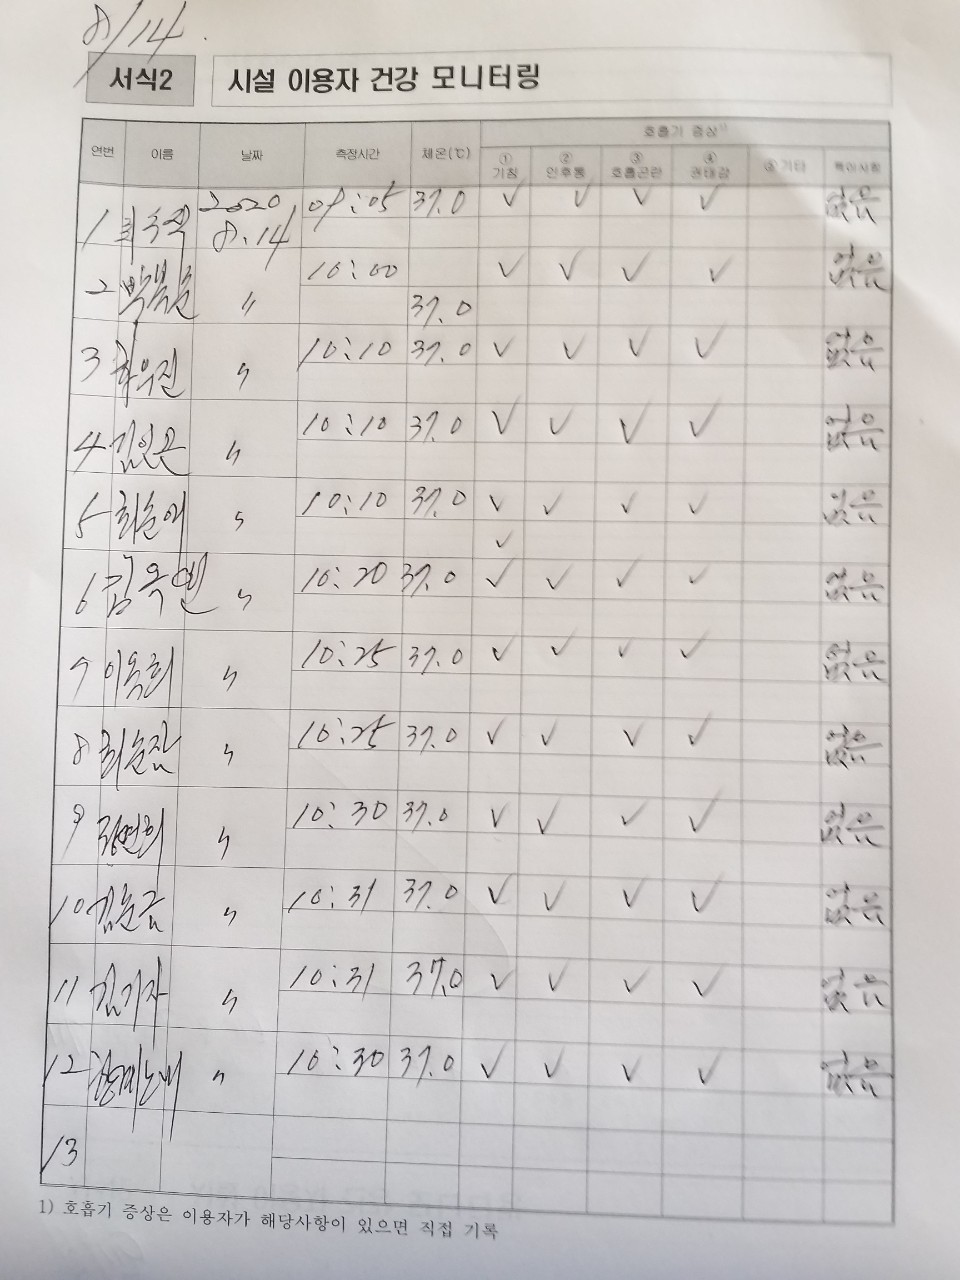 8/14.
서식2 시설 이용자 건강 모니터링
연번 이름 날짜 측정시간 체온(℃) 호흡기 증상1)
① 기침 ② 인후통 ③ 호흡곤란 ④ 권태감 ⑤ 기타 특이사항
1 2020 8.14 09:05 37.0 ✓ ✓ ✓ ✓ 없음
2 〃 10:00 37.0 ✓ ✓ ✓ ✓ 없음
3 〃 10:10 37.0 ✓ ✓ ✓ ✓ 없음
4 〃 10:10 37.0 ✓ ✓ ✓ ✓ 없음
5 최순애 〃 10:10 37.0 ✓ ✓ ✓ ✓ 없음
✓
6 김옥연 〃 10:20 37.0 ✓ ✓ ✓ ✓ 없음
7 이옥희 〃 10:25 37.0 ✓ ✓ ✓ ✓ 없음
8 〃 10:25 37.0 ✓ ✓ ✓ ✓ 없음
9 〃 10:30 37.0 ✓ ✓ ✓ ✓ 없음
10 김순금 〃 10:31 37.0 ✓ ✓ ✓ ✓ 없음
11 김기자 〃 10:31 37.0 ✓ ✓ ✓ ✓ 없음
12 〃 10:30 37.0 ✓ ✓ ✓ ✓ 없음
13
1) 호흡기 증상은 이용자가 해당사항이 있으면 직접 기록